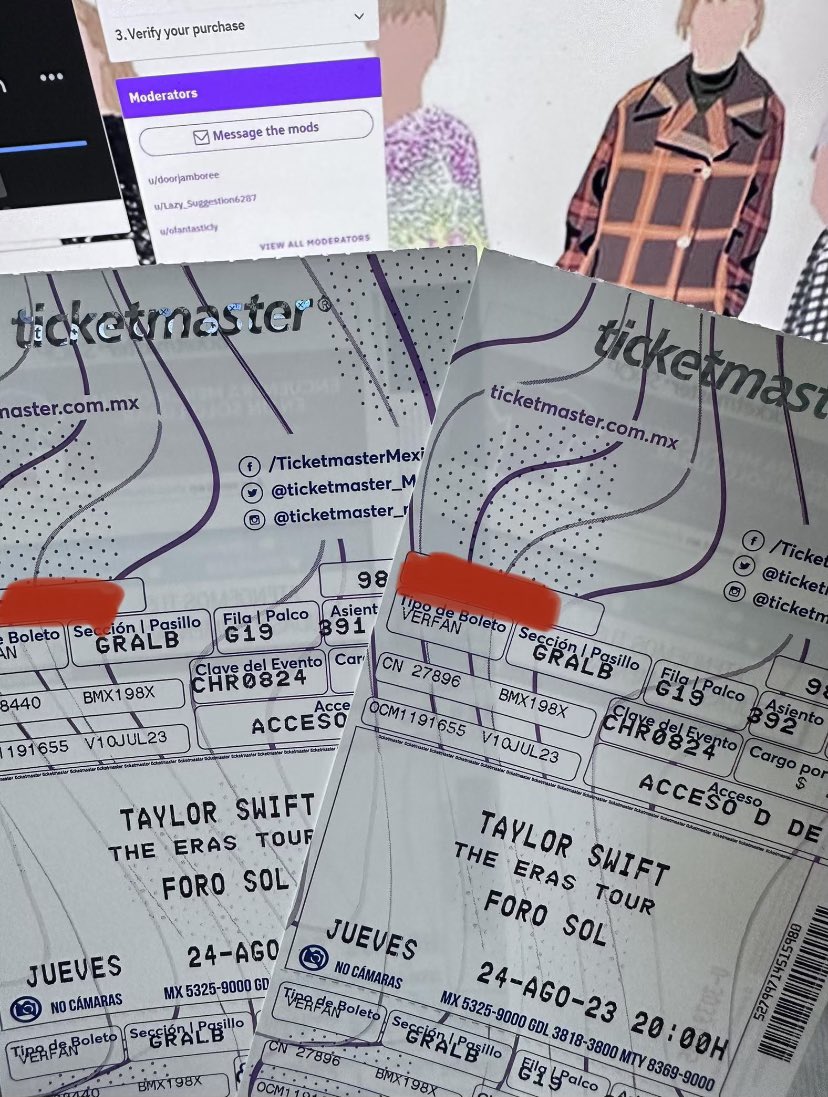 3.Verify your purchase
Moderators
Message the mods
u/doorjamboree
u/Lazy_Suggestion6287
u/ofantasticly
VIEW ALL MODERATORS
ticketmaster®
master.com.mx
/TicketmasterMexi
@ticketmaster_M
@ticketmaster_
98
e Boleto
AN
Sección | Pasillo
GRALB
Fila | Palco
G19
Asient
391
Clave del Evento
CHR0824
Car
8440 BMX198X
Acce
ACCESO
1191655 V10JUL23
TAYLOR SWIFT
THE ERAS TOUR
FORO SOL
JUEVES 24-AGO
NO CÁMARAS MX 5325-9000 GD
Tipo de Boleto
VERFAN
Sección | Pasillo
GRALB
8440 BMX198X
ticketmast
ticketmaster.com.mx
/Ticket
@ticket
@ticketm
98
Tipo de Boleto
VERFAN
Sección | Pasillo
GRALB
Fila | Palco
G19
Asiento
392
CN 27896 BMX198X
Clave del Evento
CHR0824
Cargo por
$
OCM1191655 V10JUL23
Acceso
ACCESO D DE
TAYLOR SWIFT
THE ERAS TOUR
FORO SOL
JUEVES 24-AGO-23 20:00H
NO CÁMARAS MX 5325-9000 GDL 3818-3800 MTY 8369-9000
52799714515980
Tipo de Boleto
VERFAN
Sección | Pasillo
GRALB
Fila | Palco
G19
CN 27896 BMX198X
OCM1191655